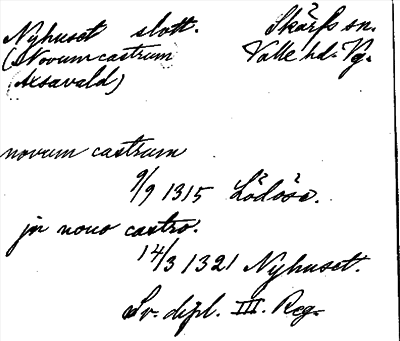 Nyhuset slott. Skärfs sn.
(Novum castrum Valle hd. Vg.
Axavald)
novum castrum
9/9 1315 Lödöse.
in novo castro.
14/3 1321 Nyhuset.
Sv. dipl. III. Reg.